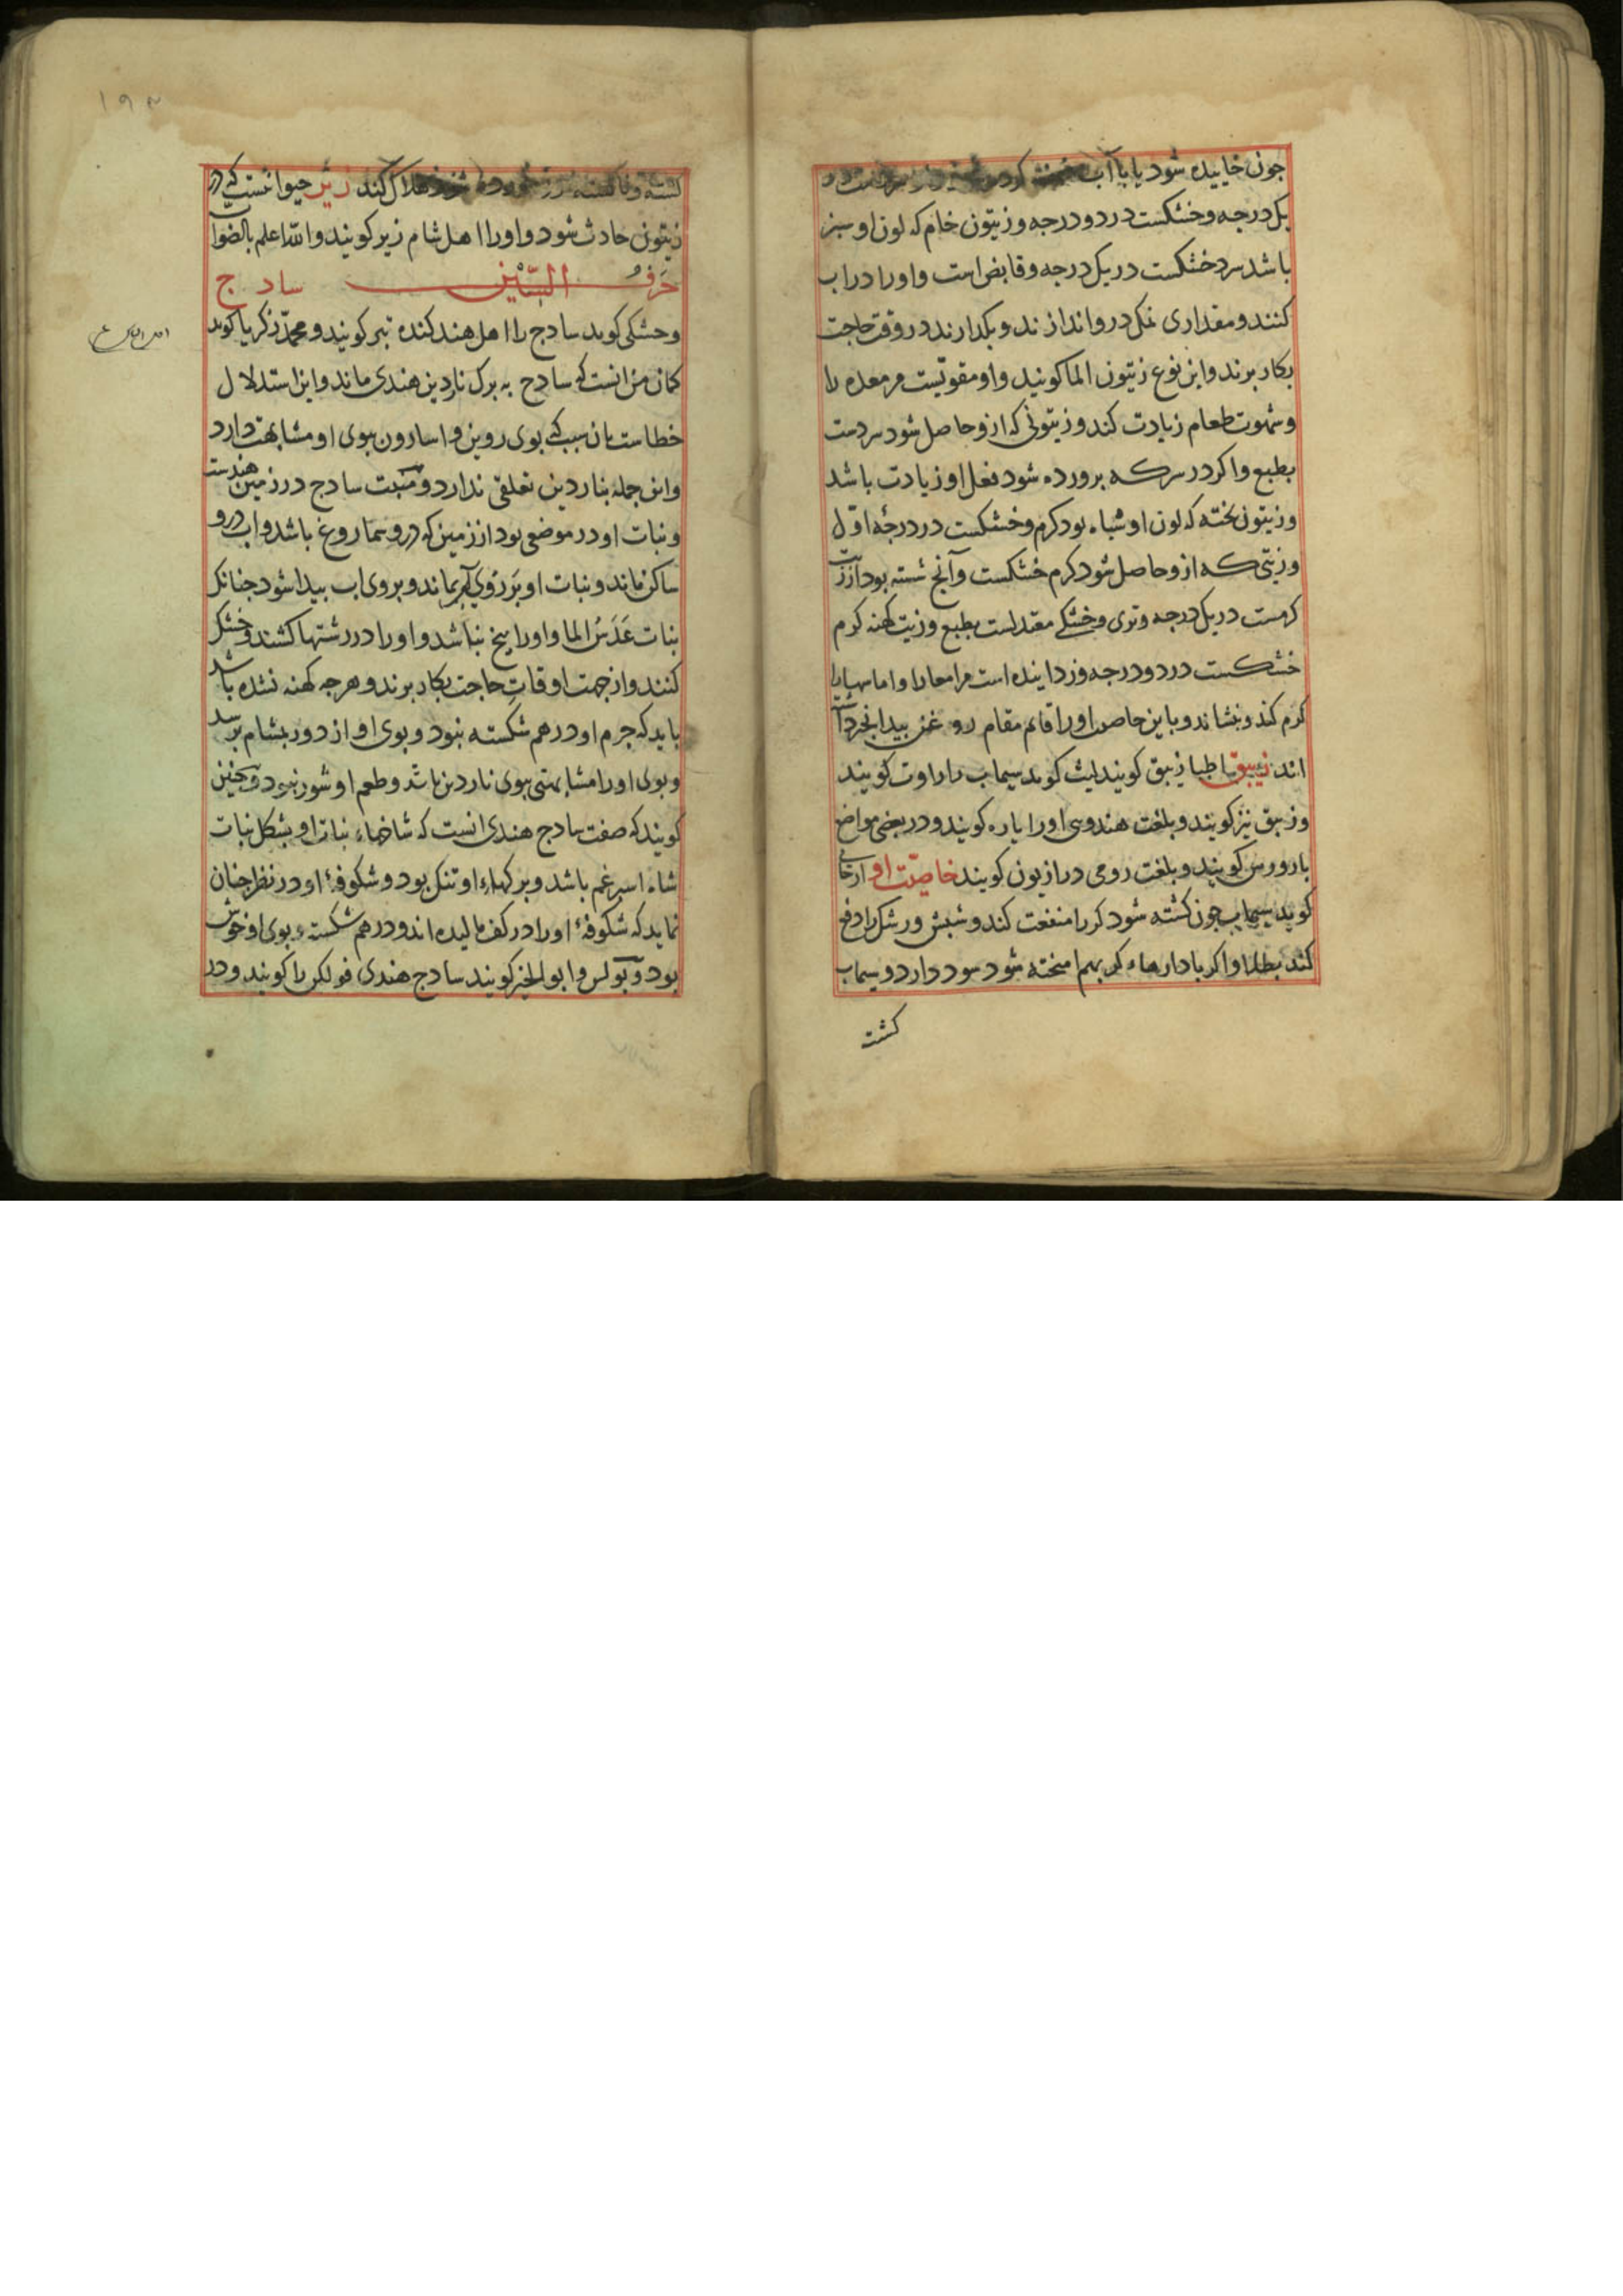 جون خاییده شود یا با آب
یک درجه و خشکست در دو درجه و زیتون خام که لون او سبز
باشد سرد خشکست در یک درجه و قابض است و او را در آب
کنند و مقداری نمک درو اندازند و بکدارند در وقت حاجت
بکار برند و این نوع زیتون الما کویند و او مقویست مر معده را
و شهوت طعام زیادت کند و زیتونی که ازو حاصل شود سردست
بطبع و اکر در سرکه برورده شود فعل او زیادت باشد
و زیتون بخته که لون او سیاه بود کرم و خشکست در درجهٔ اوّل
و زیتی که ازو حاصل شود کرم خشکست و آنج شسته بود از زیت
کرمست در یک درجه و تری و خشکی معتدلست بطبع و زیت کهنه کرم
خشکست در دو درجه و زداینده است مر امعا را و اماسها را
کرم کند و بنشاند و باین خاصیت او را قائم مقام روغن بیدانجیر داشته
اند زیبق اطبا زیبق کویند لیث کوید سیماب را زاوت کویند
و زیبق نیز کویند و بلغت هندوی او را باره کویند و در بعضی مواضع
کویند و بلغت رومی درازیون کویند خاصیّت او ارجانی
کوید سیماب جون کشته شود کر را منفعت کند و شبش و رشک را دفع
کند بطلا و اکر با دارهاء کر بهم امیخته شود سود دارد و سیماب
کشت
۱۹۳
کشته و ناکشته خورده شود هلاک کند زیر حیوانیست که در
زیتون حادث شود و او را اهل شام زیر کویند والله اعلم بالصواب
حرف السّین ساد ج
و حشکی کوید سادج را اهل هند کنده تبر کویند و محمّد زکریا کوید
کمان من انست که سادج به برک ناردین هندی ماند و این استدلال
خطاست بان سبب که بوی روین و اسارون ببوی او مشابهت دارد
و این جمله بناردین تعلقی ندارد و منبت سادج در زمین هندست
و نبات او در موضعی بود از زمین که درو سماروغ باشد و اب درو
ساکن ماند و نبات او بر روی اب بماند و بروی اب بیدا شود جنانک
نبات عَدَسُ الما و او را بیخ نباشد و او را در رشتها کشند و خشک
کنند و از جهت اوقات حاجت بکار برند و هرجه کهنه نشده باشد
باید که جرم او درهم شکسته نبود و بوی او از دور بمشام برسد
و بوی او را مشابهتی ببوی ناردین باشد و طعم او شور نبود و جنین
کویند که صفت سادج هندی انست که شاخهاء نبات او بشکل نبات
شاه اسبرغم باشد و برکهاء او تنک بود و شکوفهٔ او در نظر جنان
نماید که شکوفهٔ او را در کف مالیده اند و درهم شکسته و بوی او خوش
بود و بولس و ابوالخیر کویند سادج هندی فولکن را کویند و در